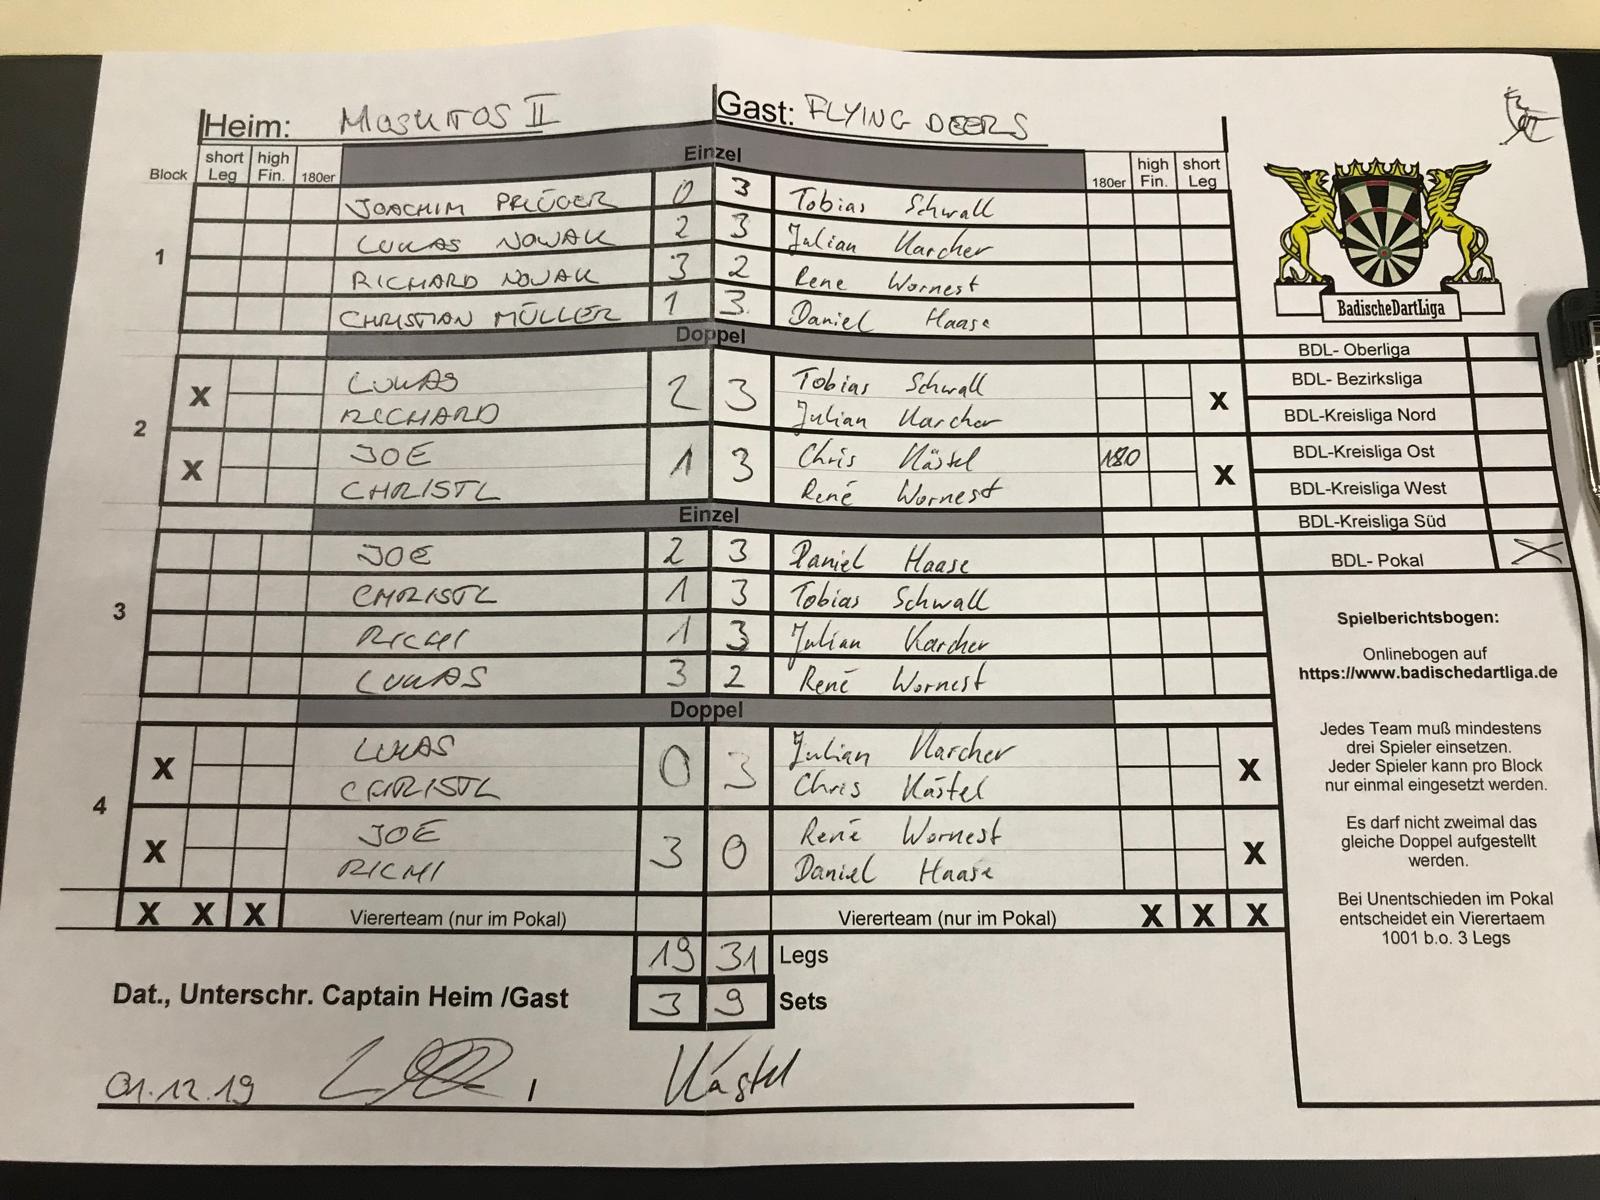 Heim: MOSKITOS II Gast: FLYING DEERS
Block short Leg high Fin. 180er Einzel 180er high Fin. short Leg
1
JOACHIM PFLÜGER 0 3 Tobias Schwall
LUKAS NOWAK 2 3 Julian Karcher
RICHARD NOWAK 3 2 Rene Wornest
CHRISTIAN MÜLLER 1 3 Daniel Haase
Doppel
2
X LUKAS 2 3 Tobias Schwall X
RICHARD Julian Karcher
X JOE 1 3 Chris Kästel 180 X
CHRISTL René Wornest
Einzel
3
JOE 2 3 Daniel Haase
CHRISTL 1 3 Tobias Schwall
RICHI 1 3 Julian Karcher
LUKAS 3 2 René Wornest
Doppel
4
X LUKAS 0 3 Julian Karcher X
CHRISTL Chris Kästel
X JOE 3 0 René Wornest X
RICHI Daniel Haase
X X X Viererteam (nur im Pokal) Viererteam (nur im Pokal) X X X
19 31 Legs
Dat., Unterschr. Captain Heim /Gast 3 9 Sets
01.12.19 / Kästel
BadischeDartLiga
BDL- Oberliga
BDL- Bezirksliga
BDL-Kreisliga Nord
BDL-Kreisliga Ost
BDL-Kreisliga West
BDL-Kreisliga Süd
BDL- Pokal X
Spielberichtsbogen:
Onlinebogen auf
https://www.badischedartliga.de
Jedes Team muß mindestens
drei Spieler einsetzen.
Jeder Spieler kann pro Block
nur einmal eingesetzt werden.
Es darf nicht zweimal das
gleiche Doppel aufgestellt
werden.
Bei Unentschieden im Pokal
entscheidet ein Vierertaem
1001 b.o. 3 Legs